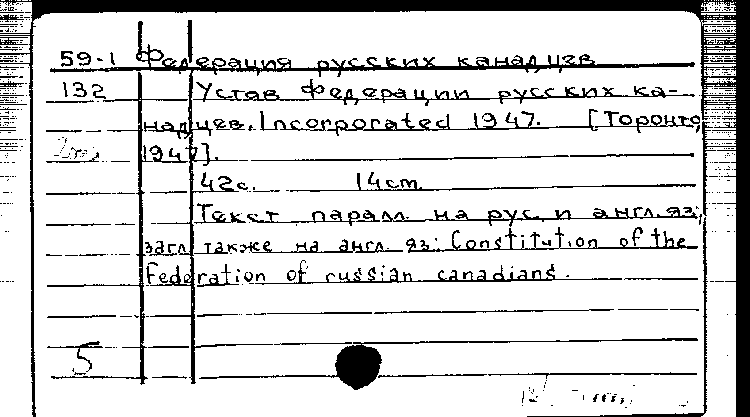 59-1 Федерация русских канадцев
132 Устав Федерации русских ка-
надцев. Incorporated 1947. [Торонто,
1947].
42с. 14cm.
Текст паралл. на рус. и англ. яз;
загл. также на англ. яз: Constitution of the
Federation of russian canadians.
5